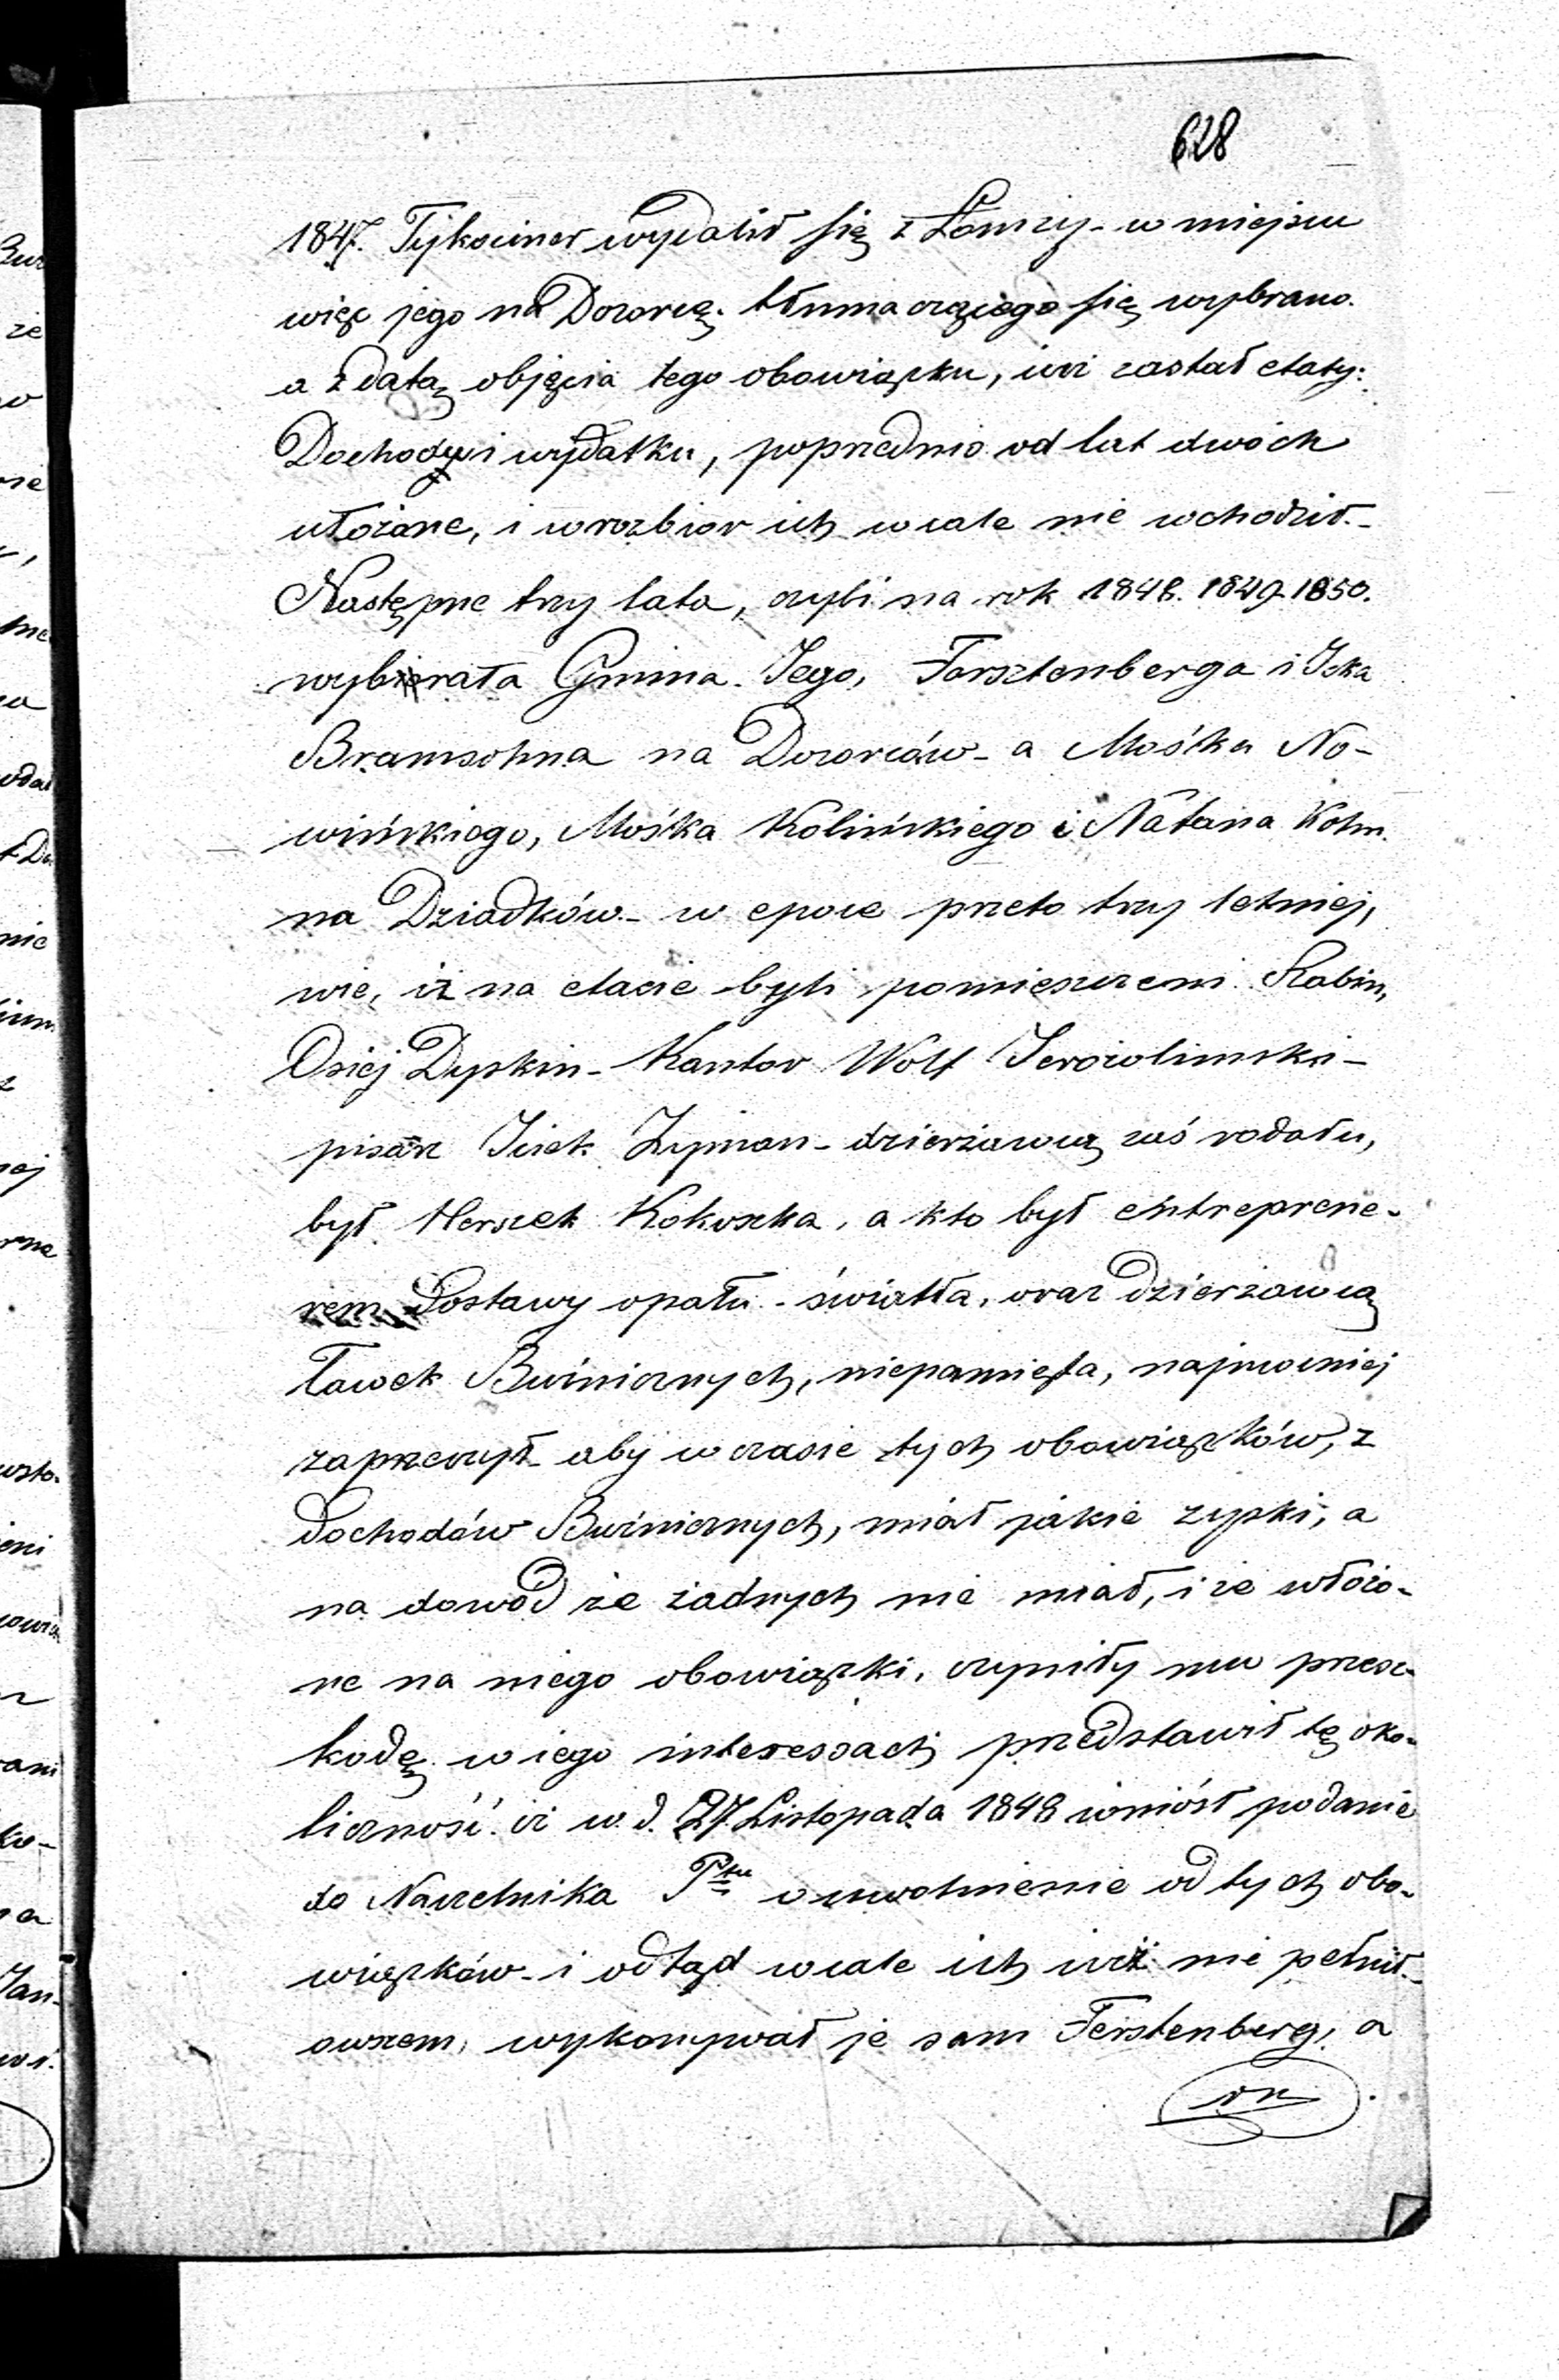 628
1847. Tykociner wydalił się z Łomży - w miejscu
więc jego na Dozorcę tłumaczącego się wybrano.
a z datą objęcia tego obowiązku, iuż zastał etaty:
Dochody i wydatku, poprzednio od lat dwóch
ułożone, i w rozbior ich wcale nie wchodził. -
Następne trzy lata, czyli na rok 1848. 1849. 1850.
wybierała Gmina Jego, Forsztenberga i Icka
Bramsohna na Dozorców - a Mośka No-
wińskiego, Mośka Kolińskiego i Natana Kohn.
na Dziadków - w epoce przeto trzy letniej,
wie, iż na etacie byli pomieszczeni Rabin,
Osiej Dyskin - Kantor Wolf Jerozolimski -
pisarz Icek Zyman - dzierżawcą zaś rodału,
był Herszek Kokoszka, a kto był entreprene-
rem Dostawy opału - światła, oraz Dzierżawcą
Ławek Bużnicznych, niepamięta, najmocniej
zaprzeczył - aby w czasie tych obowiązków, z
Dochodów Bużnicznych, miał jakie zyski, a
na dowód że żadnych nie miał, i że włożo-
ne na niego obowiązki, czyniły mu przesz-
kodę w iego interessach przedstawił tę oko-
liczność iż w d. 27 Listopada 1848 wniósł podanie
do Naczelnika Ptu o uwolnienie od tych obo-
wiązków - i odtąd wcale ich iuż nie pełnił -
owszem, wykonywał je sam Ferstenberg, a